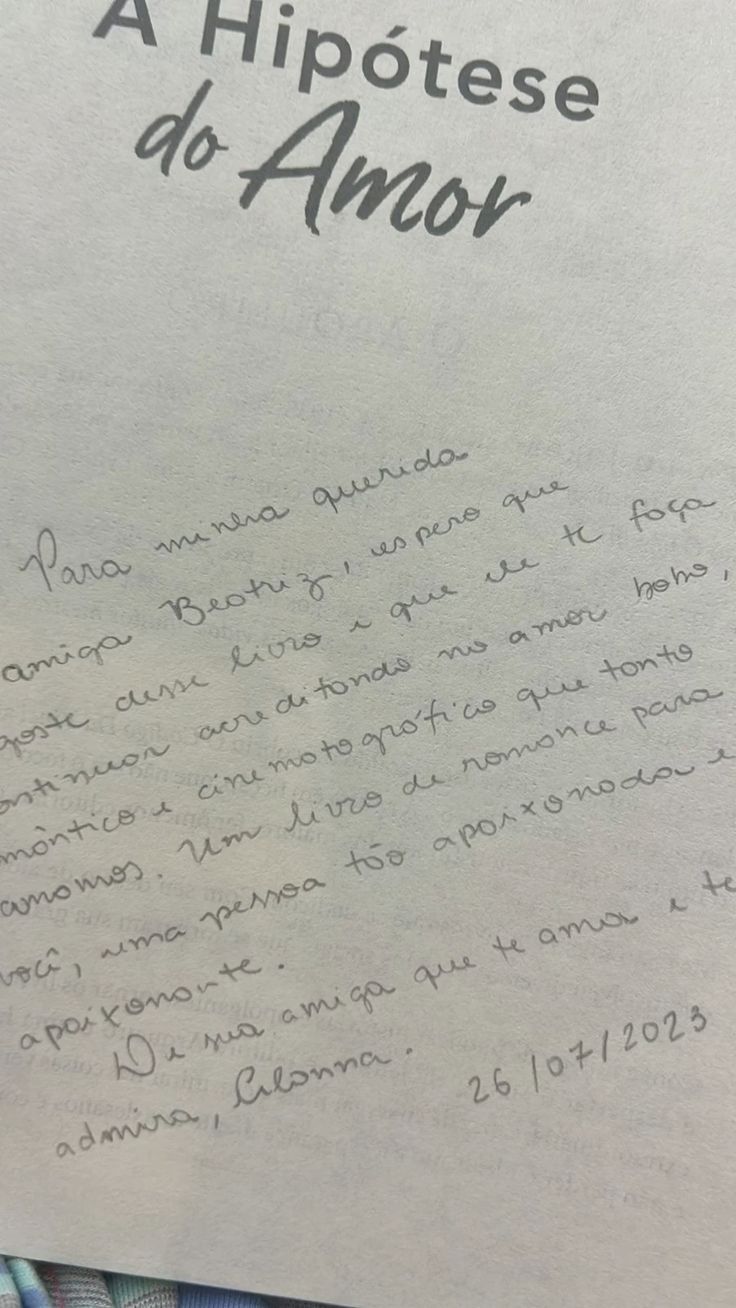 A Hipótese
do Amor
Para minha querida
amiga Beatriz, espero que
goste desse livro e que ele te faça
ontinuar acreditando no amor bobo,
mântico e cinematográfico que tanto
amamos. Um livro de romance para
você, uma pessoa tão apaixonada e
apaixonante.
De sua amiga que te ama e te
admira,
26/07/2023